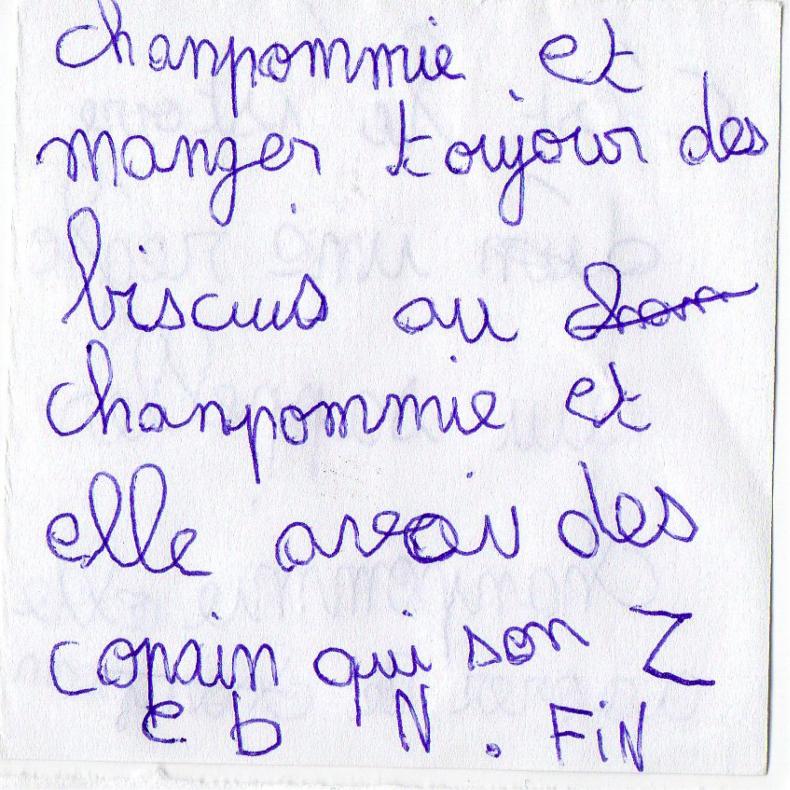 chanpommie et
manger toujour des
biscuis au
chanpommie et
elle avai des
copain qui son Z
e b N . FiN